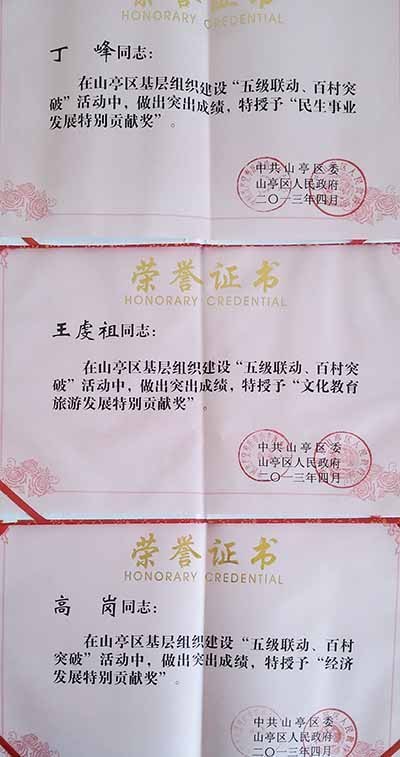 荣誉证书
HONORARY CREDENTIAL
丁峰同志：
在山亭区基层组织建设“五级联动、百村
突破”活动中，做出突出成绩，特授予“民生事业
发展特别贡献奖”。
中共山亭区委
山亭区人民政府
二〇一三年四月
荣誉证书
HONORARY CREDENTIAL
王虔祖同志：
在山亭区基层组织建设“五级联动、百村突
破”活动中，做出突出成绩，特授予“文化教育
旅游发展特别贡献奖”。
中共山亭区委
山亭区人民政府
二〇一三年四月
荣誉证书
HONORARY CREDENTIAL
高岗同志：
在山亭区基层组织建设“五级联动、百村
突破”活动中，做出突出成绩，特授予“经济
发展特别贡献奖”。
中共山亭区委
山亭区人民政府
二〇一三年四月